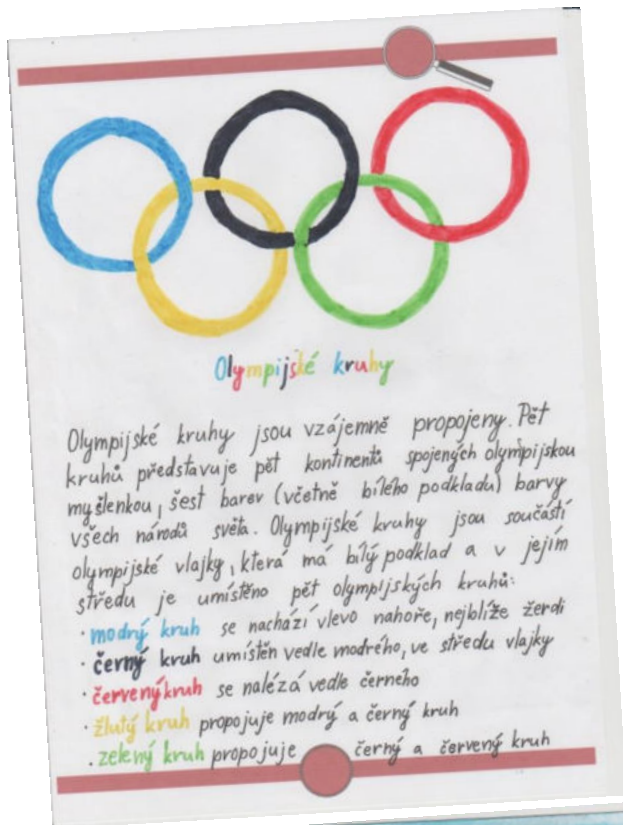 Olympijské kruhy
Olympijské kruhy jsou vzájemně propojeny. Pět
kruhů představuje pět kontinentů spojených olympijskou
myšlenkou, šest barev (včetně bílého podkladu) barvy
všech národů světa. Olympijské kruhy jsou součástí
olympijské vlajky, která má bílý podklad a v jejím
středu je umístěno pět olympijských kruhů:
· modrý kruh se nachází vlevo nahoře, nejblíže žerdi
· černý kruh umístěn vedle modrého, ve středu vlajky
· červený kruh se nalézá vedle černého
· žlutý kruh propojuje modrý a černý kruh
· zelený kruh propojuje černý a červený kruh